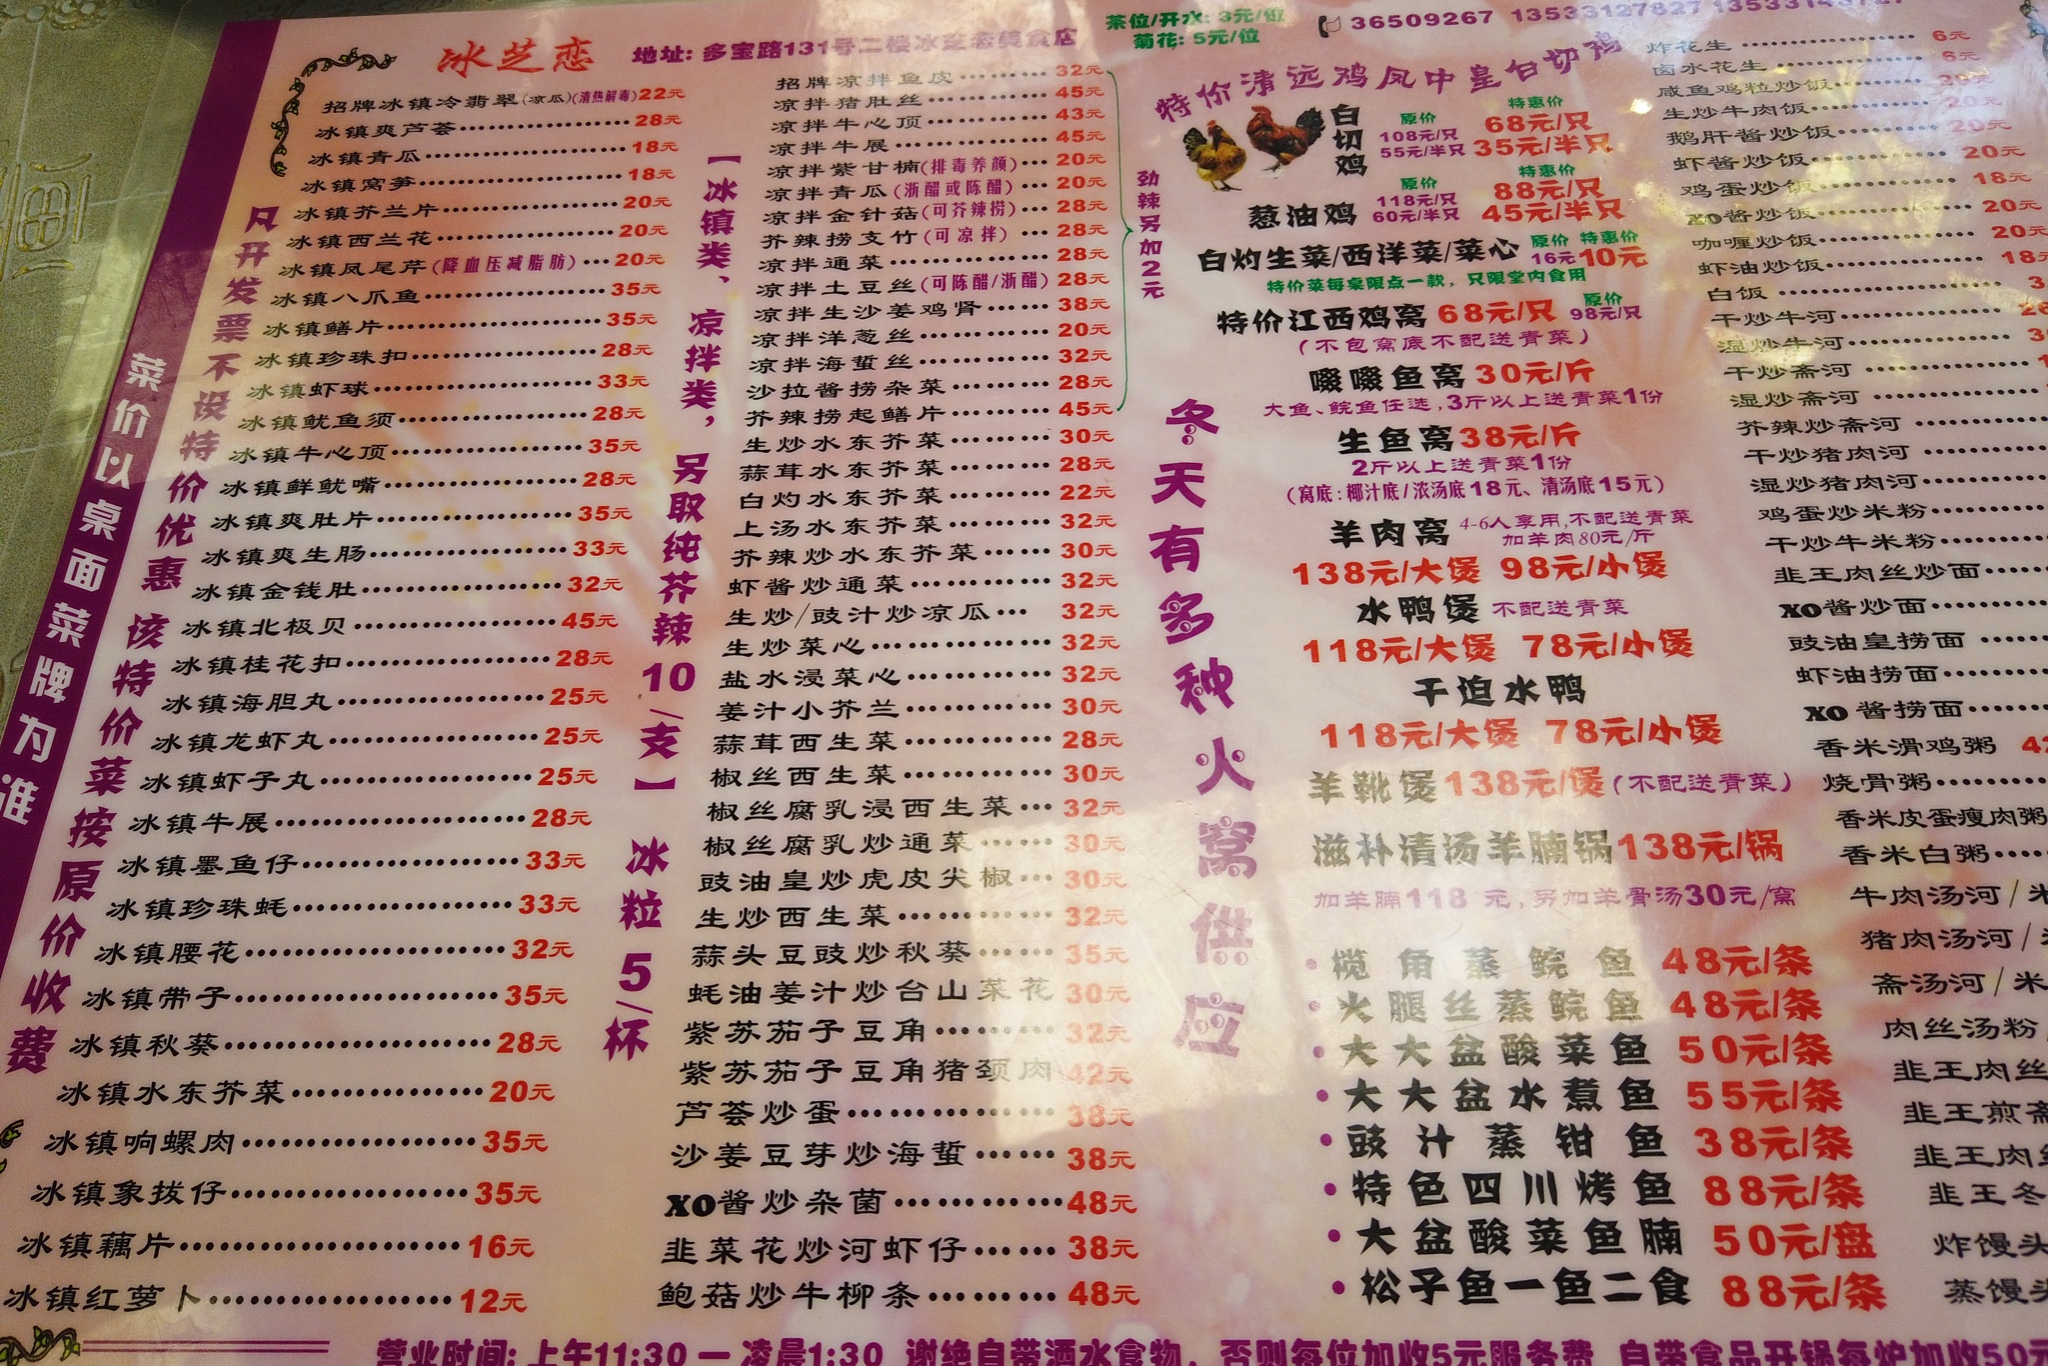 菜价以桌面菜牌为准
凡开发票不设特价优惠 该特价菜按原价收费
冰芝恋
地址: 多宝路131号二楼冰芝恋美食店
茶位/开水: 3元/位
菊花: 5元/位
36509267 13533127827
招牌冰镇冷翡翠(凉瓜)(清热解毒)22元
冰镇爽芦荟 28元
冰镇青瓜 18元
冰镇窝笋 18元
冰镇芥兰片 20元
冰镇西兰花 20元
冰镇凤尾芹(降血压减脂肪) 20元
冰镇八爪鱼 35元
冰镇鳝片 35元
冰镇珍珠扣 28元
冰镇虾球 33元
冰镇鱿鱼须 28元
冰镇牛心顶 35元
冰镇鲜鱿嘴 28元
冰镇爽肚片 35元
冰镇爽生肠 33元
冰镇金钱肚 32元
冰镇北极贝 45元
冰镇桂花扣 28元
冰镇海胆丸 25元
冰镇龙虾丸 25元
冰镇虾子丸 25元
冰镇牛展 28元
冰镇墨鱼仔 33元
冰镇珍珠蚝 33元
冰镇腰花 32元
冰镇带子 35元
冰镇秋葵 28元
冰镇水东芥菜 20元
冰镇响螺肉 35元
冰镇象拔仔 35元
冰镇藕片 16元
冰镇红萝卜 12元
【冰镇类、凉拌类，另取纯芥辣10/支】 冰粒5/杯
招牌凉拌鱼皮 32元
凉拌猪肚丝 45元
凉拌牛心顶 43元
凉拌牛展 45元
凉拌紫甘楠(排毒养颜) 20元
凉拌青瓜(浙醋或陈醋) 20元
凉拌金针菇(可芥辣捞) 28元
芥辣捞支竹(可凉拌) 28元
凉拌通菜 28元
凉拌土豆丝(可陈醋/浙醋) 28元
凉拌生沙姜鸡肾 38元
凉拌洋葱丝 20元
凉拌海蜇丝 32元
沙拉酱捞杂菜 28元
芥辣捞起鳝片 45元
劲辣另加2元
生炒水东芥菜 30元
蒜茸水东芥菜 28元
白灼水东芥菜 22元
上汤水东芥菜 32元
芥辣炒水东芥菜 30元
虾酱炒通菜 32元
生炒/豉汁炒凉瓜 32元
生炒菜心 32元
盐水浸菜心 32元
姜汁小芥兰 30元
蒜茸西生菜 28元
椒丝西生菜 30元
椒丝腐乳浸西生菜 32元
椒丝腐乳炒通菜 30元
豉油皇炒虎皮尖椒 30元
生炒西生菜 32元
蒜头豆豉炒秋葵 35元
蚝油姜汁炒台山菜花 30元
紫苏茄子豆角 32元
紫苏茄子豆角猪颈肉 42元
芦荟炒蛋 38元
沙姜豆芽炒海蜇 38元
XO酱炒杂菌 48元
韭菜花炒河虾仔 38元
鲍菇炒牛柳条 48元
特价清远鸡凤中皇白切鸡
白切鸡 原价 108元/只 55元/半只 特惠价 68元/只 35元/半只
葱油鸡 原价 118元/只 60元/半只 特惠价 88元/只 45元/半只
白灼生菜/西洋菜/菜心 原价 16元 特惠价 10元
特价菜每桌限点一款，只限堂内食用
特价江西鸡窝 68元/只 原价 98元/只
(不包窝底不配送青菜)
啜啜鱼窝 30元/斤
大鱼、鲩鱼任选,3斤以上送青菜1份
生鱼窝 38元/斤
2斤以上送青菜1份
(窝底:椰汁底/浓汤底18元、清汤底15元)
羊肉窝 4-6人享用,不配送青菜
加羊肉80元/斤
138元/大煲 98元/小煲
水鸭煲 不配送青菜
118元/大煲 78元/小煲
干迫水鸭
118元/大煲 78元/小煲
羊靴煲 138元/煲(不配送青菜)
滋朴清汤羊腩锅 138元/锅
加羊腩118元,另加羊骨汤30元/窝
冬天有多种火窝供应
• 榄角蒸鲩鱼 48元/条
• 火腿丝蒸鲩鱼 48元/条
• 大大盆酸菜鱼 50元/条
• 大大盆水煮鱼 55元/条
• 豉汁蒸钳鱼 38元/条
• 特色四川烤鱼 88元/条
• 大盆酸菜鱼腩 50元/盘
• 松子鱼一鱼二食 88元/条
炸花生 6元
卤水花生 6元
咸鱼鸡粒炒饭 20元
生炒牛肉饭 20元
鹅肝酱炒饭 20元
虾酱炒饭 20元
鸡蛋炒饭 18元
XO酱炒饭 20元
咖喱炒饭 20元
虾油炒饭 18元
白饭
干炒牛河
湿炒牛河
干炒斋河
湿炒斋河
芥辣炒斋河
干炒猪肉河
湿炒猪肉河
鸡蛋炒米粉
干炒牛米粉
韭王肉丝炒面
XO酱炒面
豉油皇捞面
虾油捞面
XO酱捞面
香米滑鸡粥
烧骨粥
香米皮蛋瘦肉粥
香米白粥
牛肉汤河/
猪肉汤河/
斋汤河/米
肉丝汤粉
韭王肉丝
韭王煎斋
韭王肉
韭王冬
炸馒头
蒸馒头
营业时间: 上午11:30 — 凌晨1:30 谢绝自带酒水食物, 否则每位加收5元服务费 自带食品开锅每炉加收50元